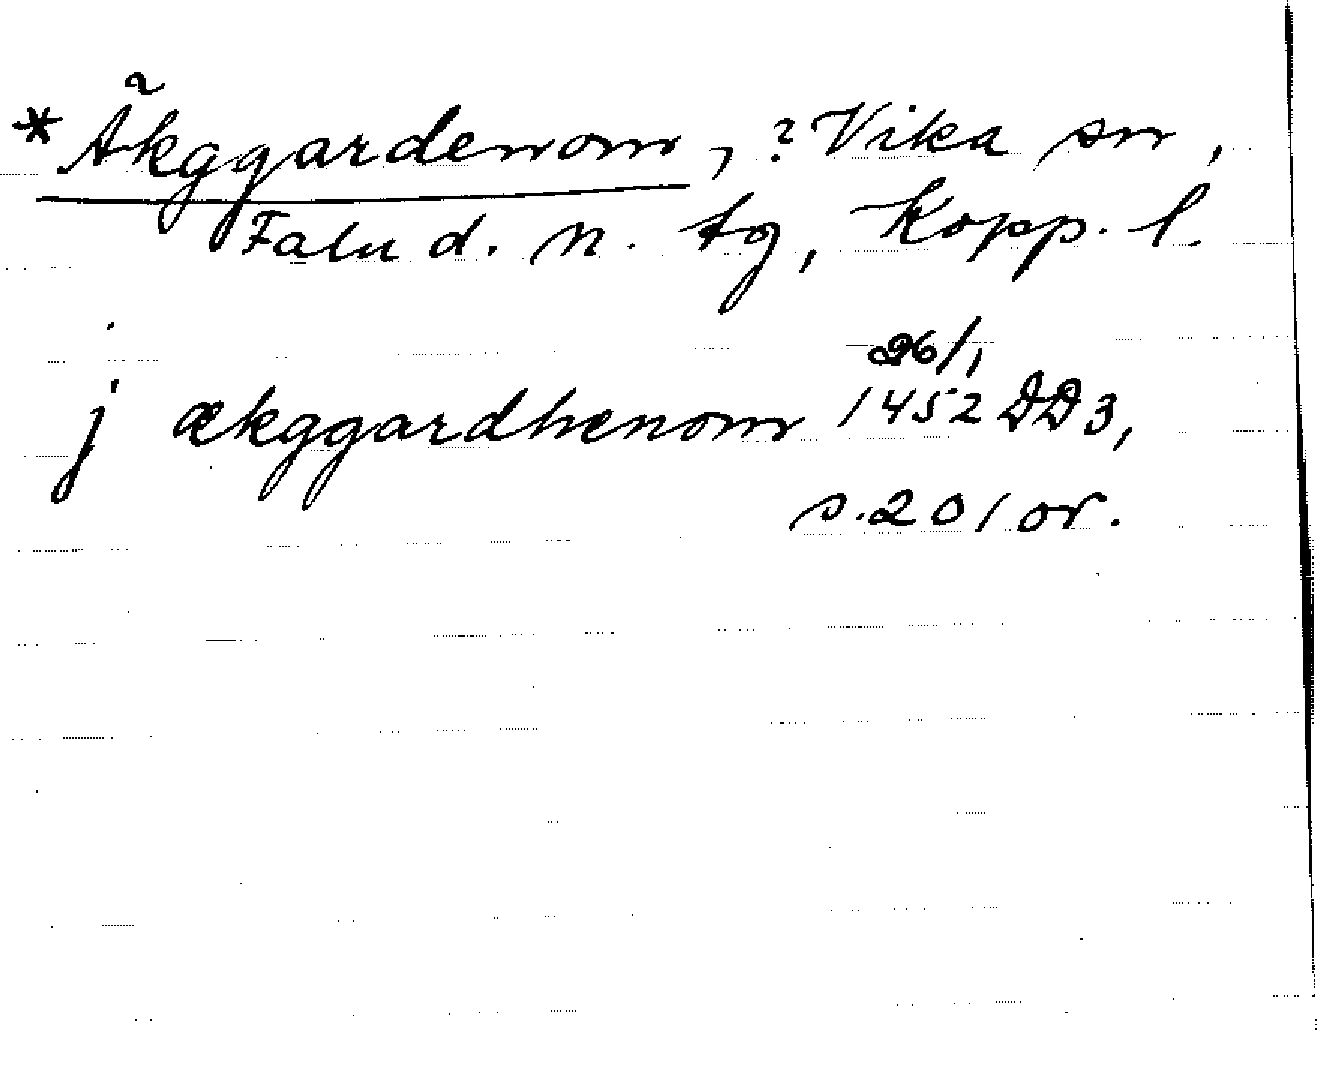 *Äkggardenom, ? Vika sn,
Falu d. n. tg, Kopp. l.
26/1
j ækggardhenom 1452 DD3,
s. 201 or.